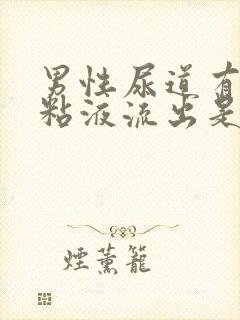 男性尿道有
粘液流出是
煙薰籠